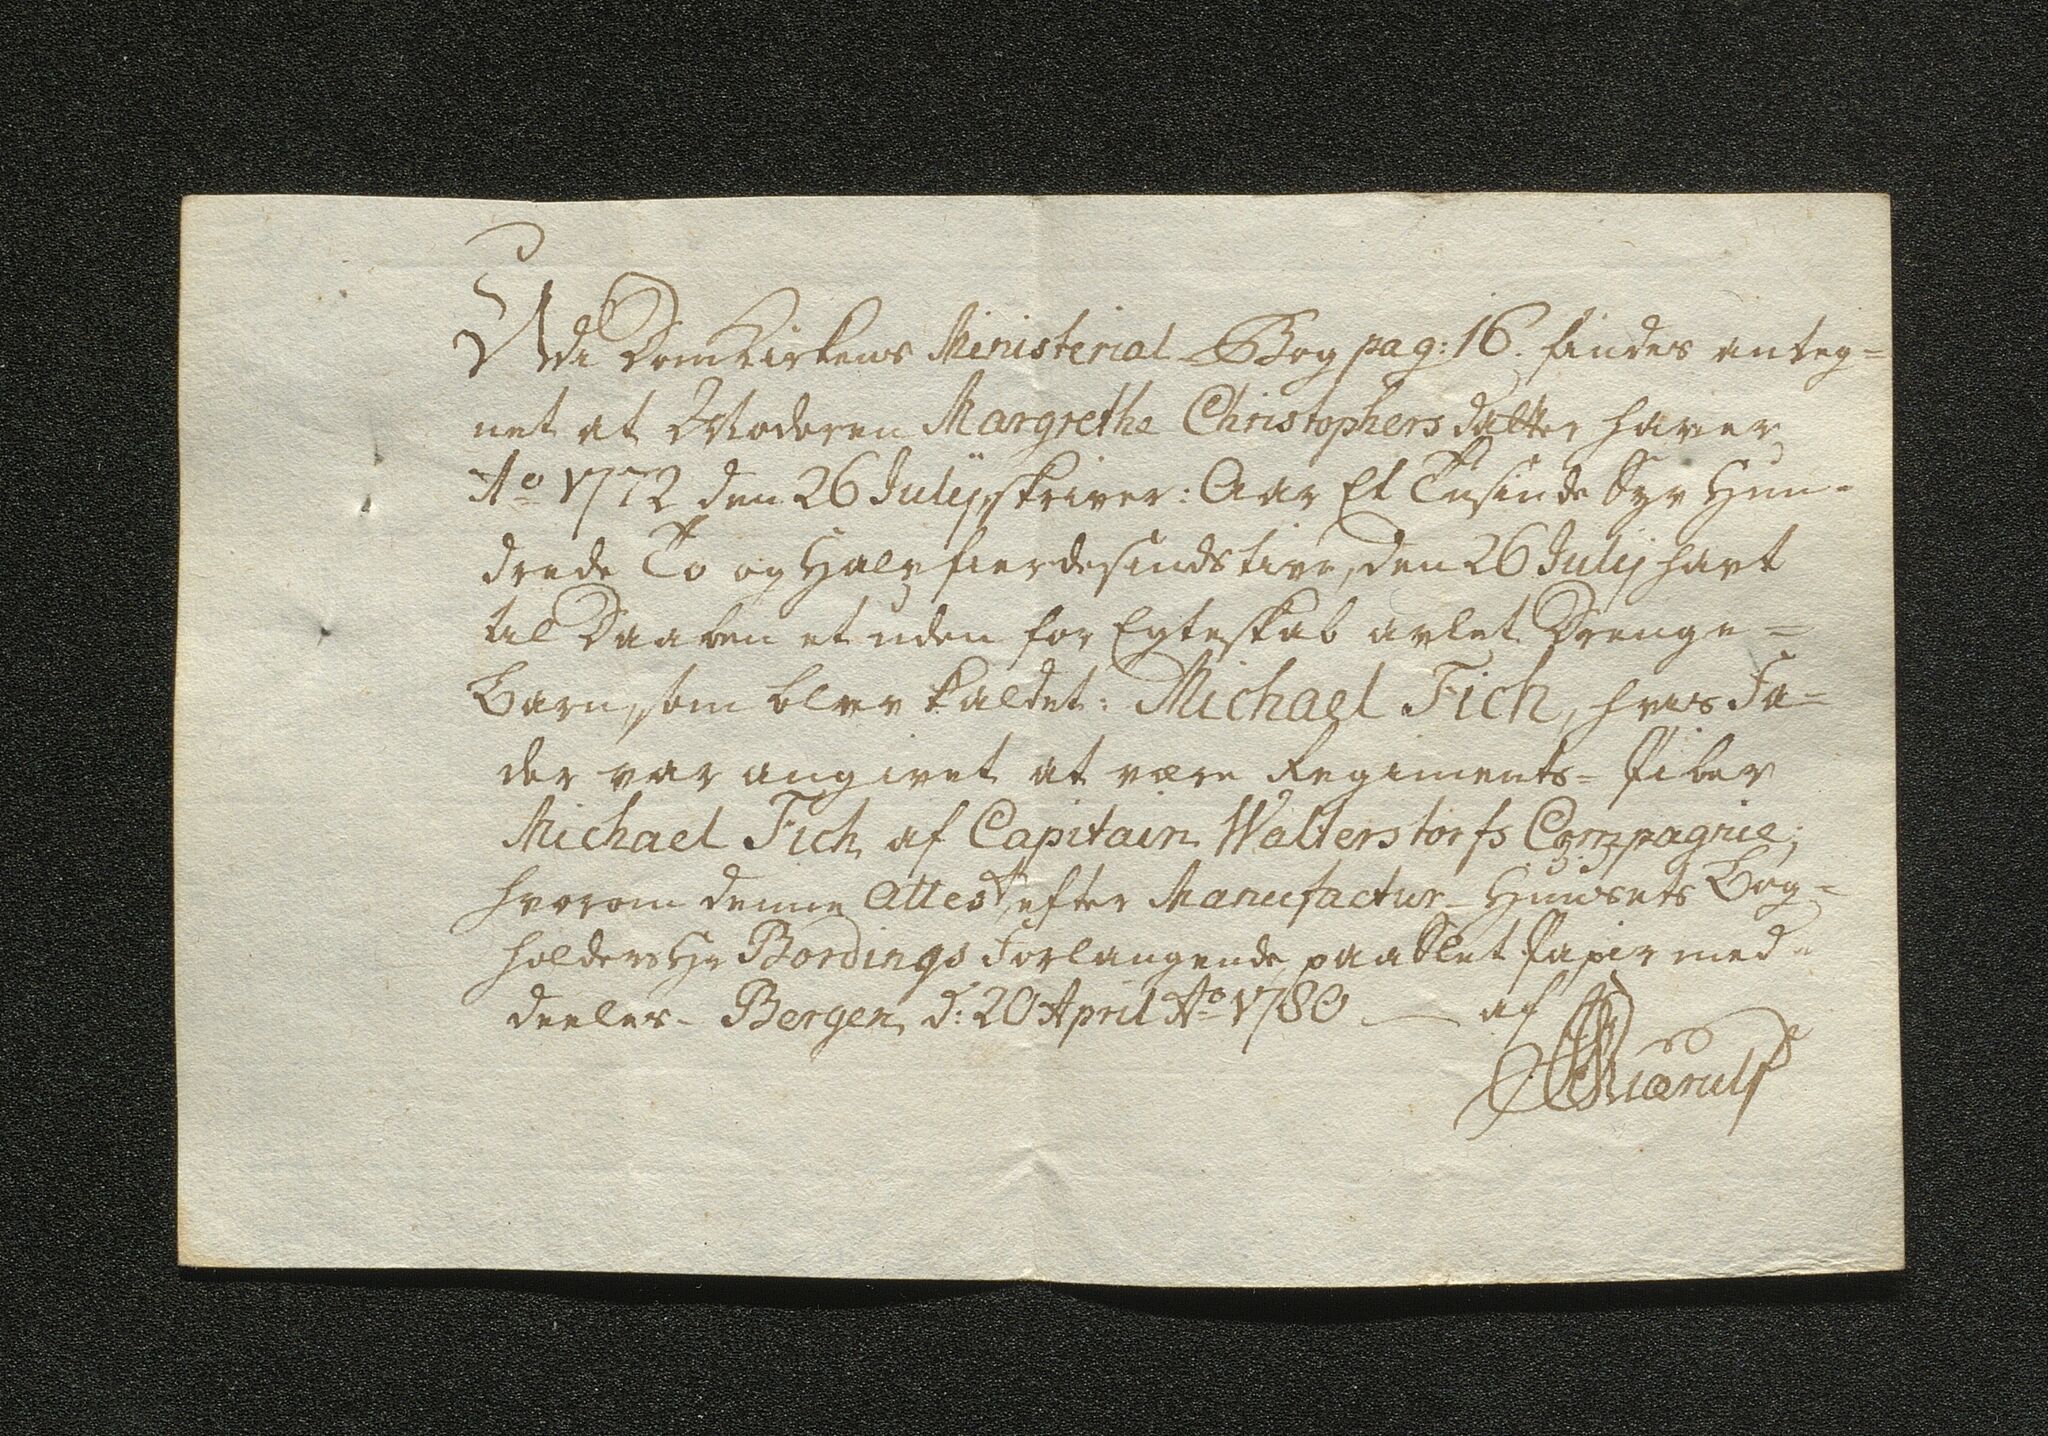 Udi DomKirkens Ministerial Bog pag: 16. findes anteg=
net at Moderen Margrethe Christophersdatter haver
Ao 1772 den 26 Julij, skriver: Aar Et Tusinde Syv Hun=
drede To og Halvfierdesindstive, den 26 Julij havt
til Daaben et uden for Egteskab avlet Drenge=
Barn, som blev kaldet: Michael Fich, hvis Fa=
der var angivet at være Regiments-Piber
Michael Fich af Capitain Walterstorfs Compagnie;
hvorom denne Attest, efter Manufactur-Huusets Bog=
holders Hr Bordings Forlangende, paa Slet Papir med=
deeles. Bergen, d: 20 April Ao 1780 — af